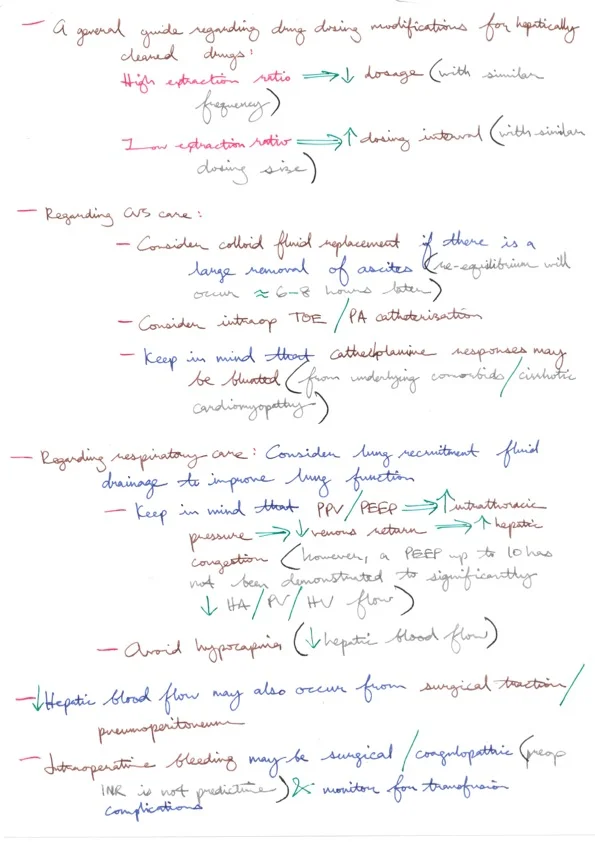 — A general guide regarding drug dosing modifications for hepatically
cleared drugs:
High extraction ratio ⟹ ↓ dosage (with similar
frequency)
Low extraction ratio ⟹ ↑ dosing interval (with similar
dosing size)
— Regarding CVS care:
— Consider colloid fluid replacement if there is a
large removal of ascites (re-equilibrium will
occur ≈ 6-8 hours later)
— Consider intraop TOE / PA catheterization
— Keep in mind that responses may
be blunted (from underlying comorbids / cirrhotic
cardiomyopathy)
— Regarding respiratory care: Consider lung recruitment fluid
drainage to improve lung function
— Keep in mind that PPV/PEEP ⟹ ↑ intrathoracic
pressure ⟹ ↓ venous return ⟹ ↑ hepatic
congestion (however, a PEEP up to 10 has
not been demonstrated to significantly
↓ HA / PV / HV flow)
— Avoid hypocapnia (↓ hepatic blood flow)
— ↓ Hepatic blood flow may also occur from surgical traction /
pneumoperitoneum
— Intraoperative bleeding may be surgical / coagulopathic (preop
INR is not predictive) & monitor for transfusion
complications